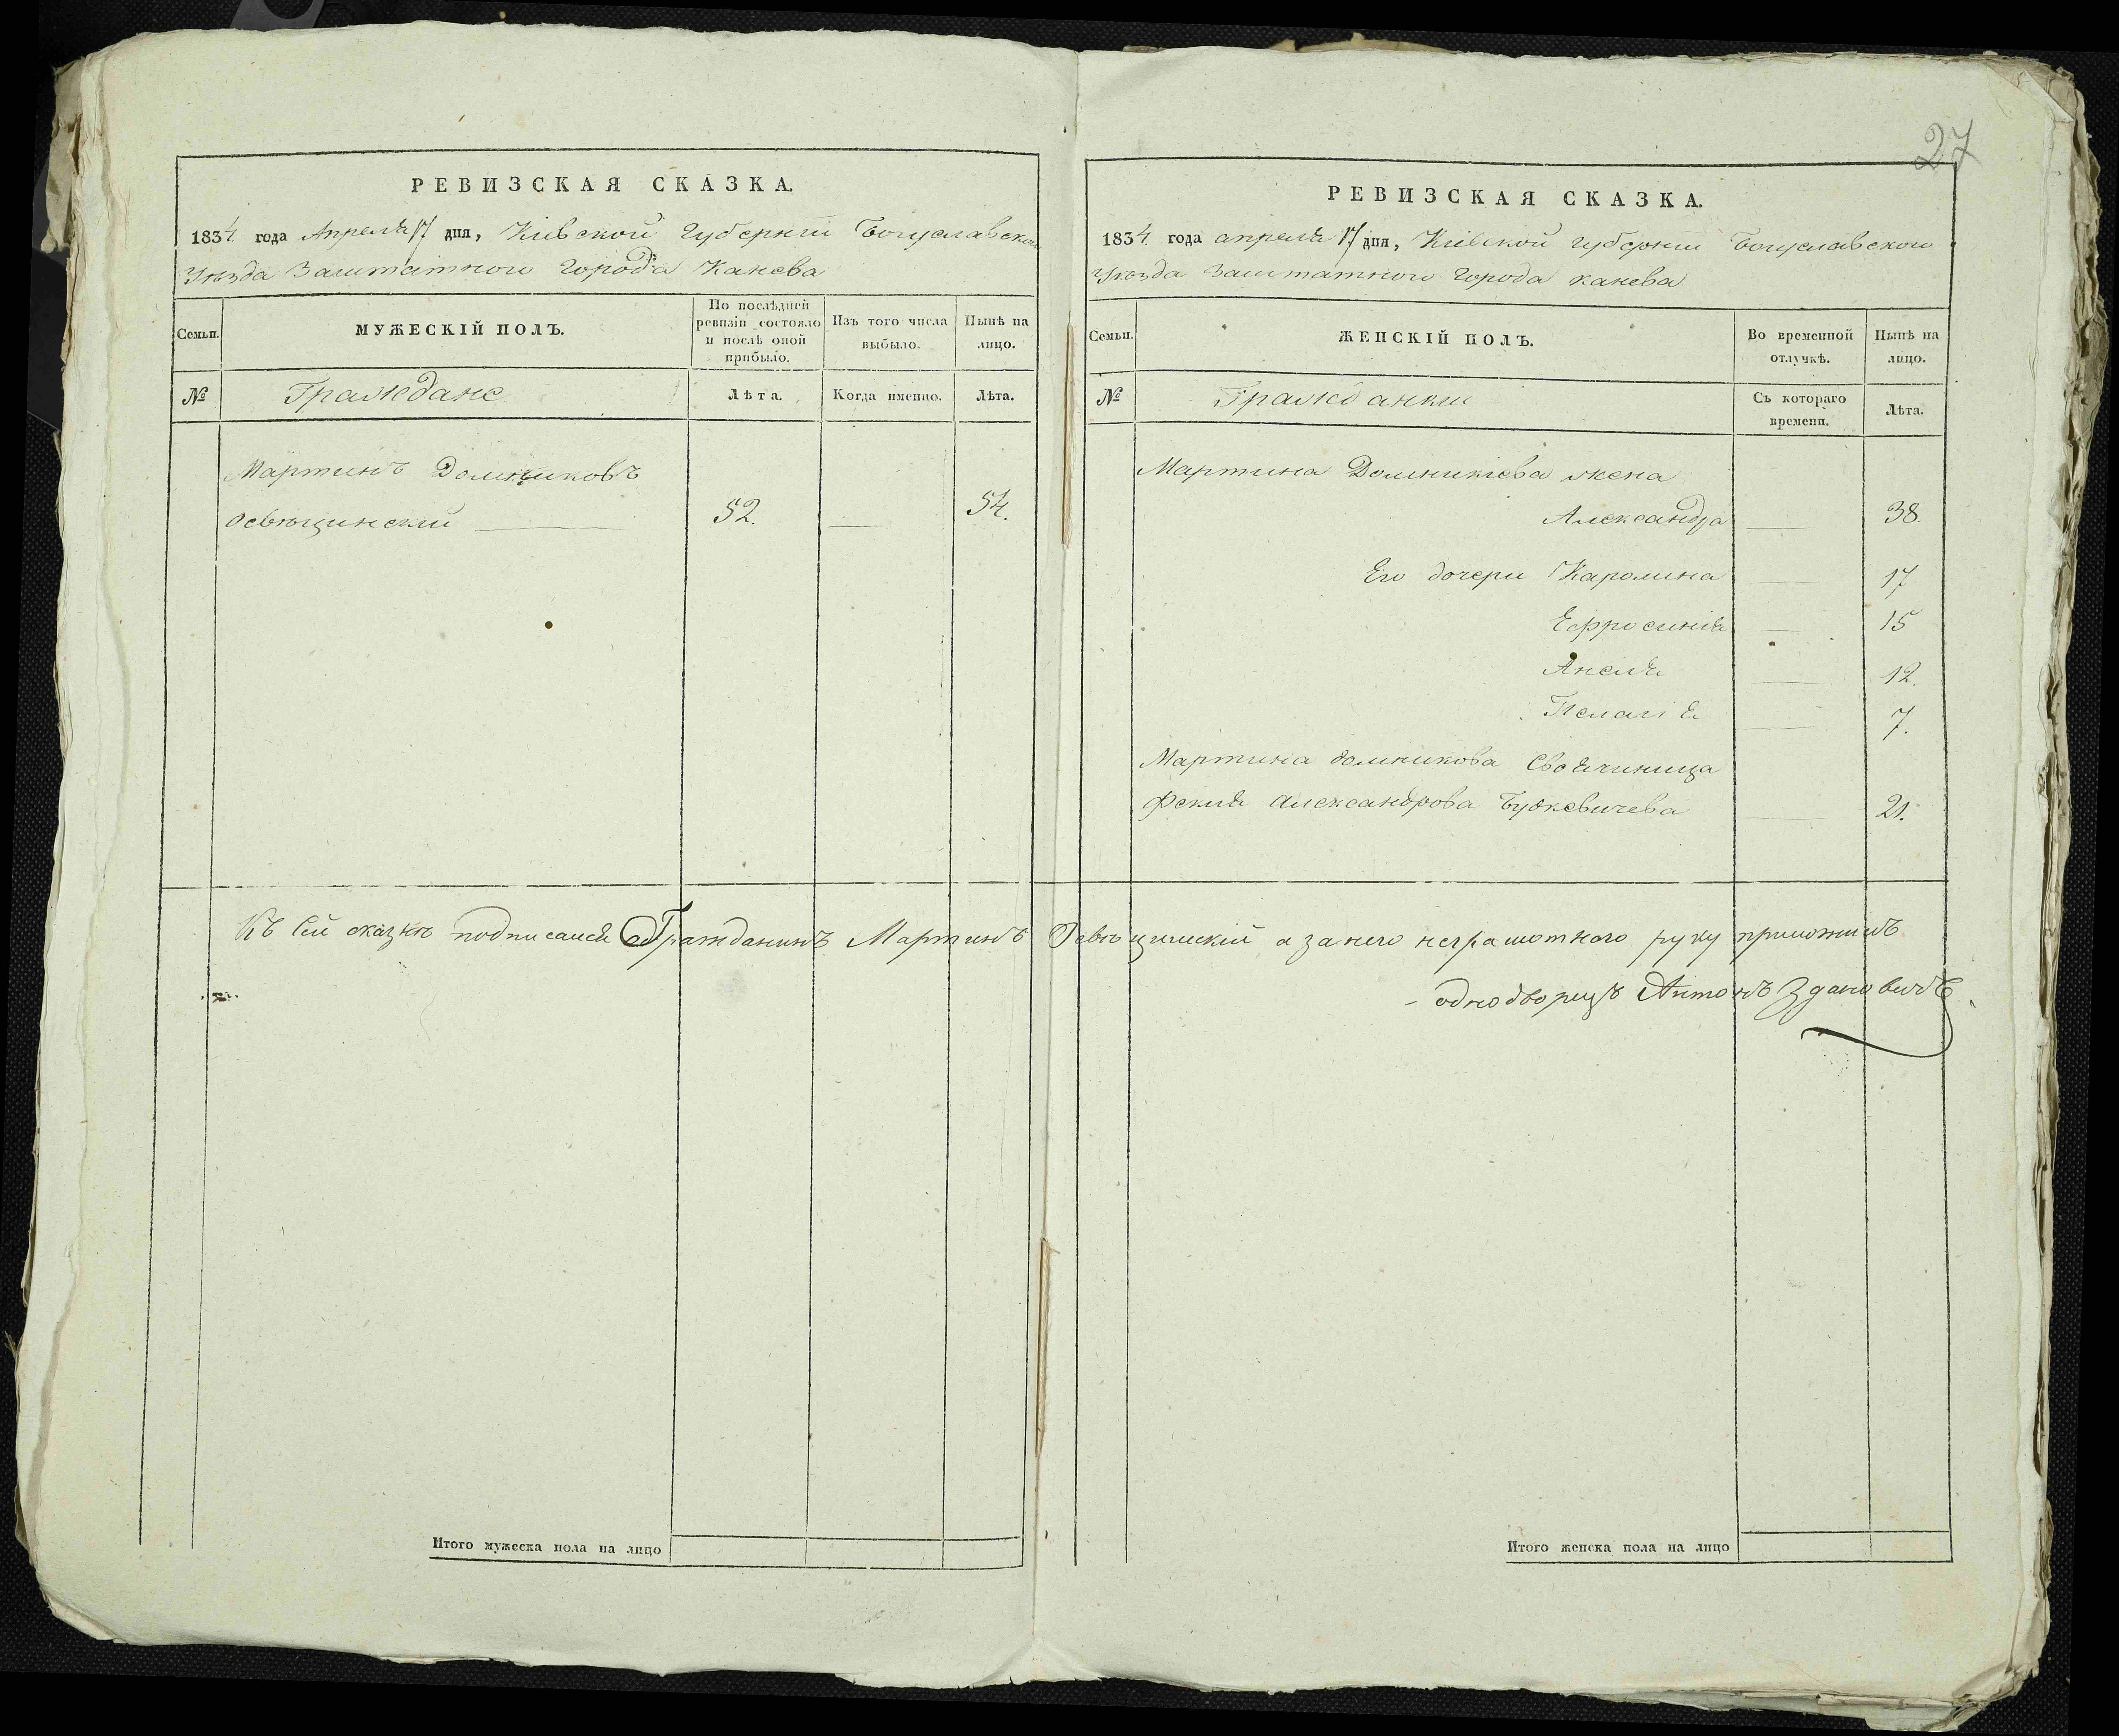 27
РЕВИЗСКАЯ СКАЗКА.
1834 года Апреля 17 дня, Кіевской Губерніи Богуславского
Уѣзда Заштатного Города Канева
Семьи.
МУЖЕСКІЙ ПОЛЪ.
По послѣдней ревизіи состояло и послѣ оной прибыло.
Изъ того числа выбыло.
Нынѣ на лицо.
№
Граждане
Лѣта.
Когда именно.
Лѣта.
Мартинъ Доминиковъ
Освѣцинский 52. 54.
Итого мужеска пола на лицо
РЕВИЗСКАЯ СКАЗКА.
1834 года апреля 17 дня, Кіевской губерніи Богуславского
Уѣзда Заштатного Города Канева
Семьи.
ЖЕНСКІЙ ПОЛЪ.
Во временной отлучкѣ.
Нынѣ на лицо.
№
Гражданки
Съ котораго времени.
Лѣта.
Мартина Доминикіева жена
Александра 38.
Его дочери Каролина 17
Ефросинія 15
Анеля 12.
Пелагія 7.
Мартина доминикова Своячиница
Фекля Александрова 21.
Къ Сей сказкѣ подписался Гражданинъ Мартинъ Освѣцинский а занего неграмотного руку приложилъ
однодворецъ Антонъ Здановичъ
Итого женска пола на лицо